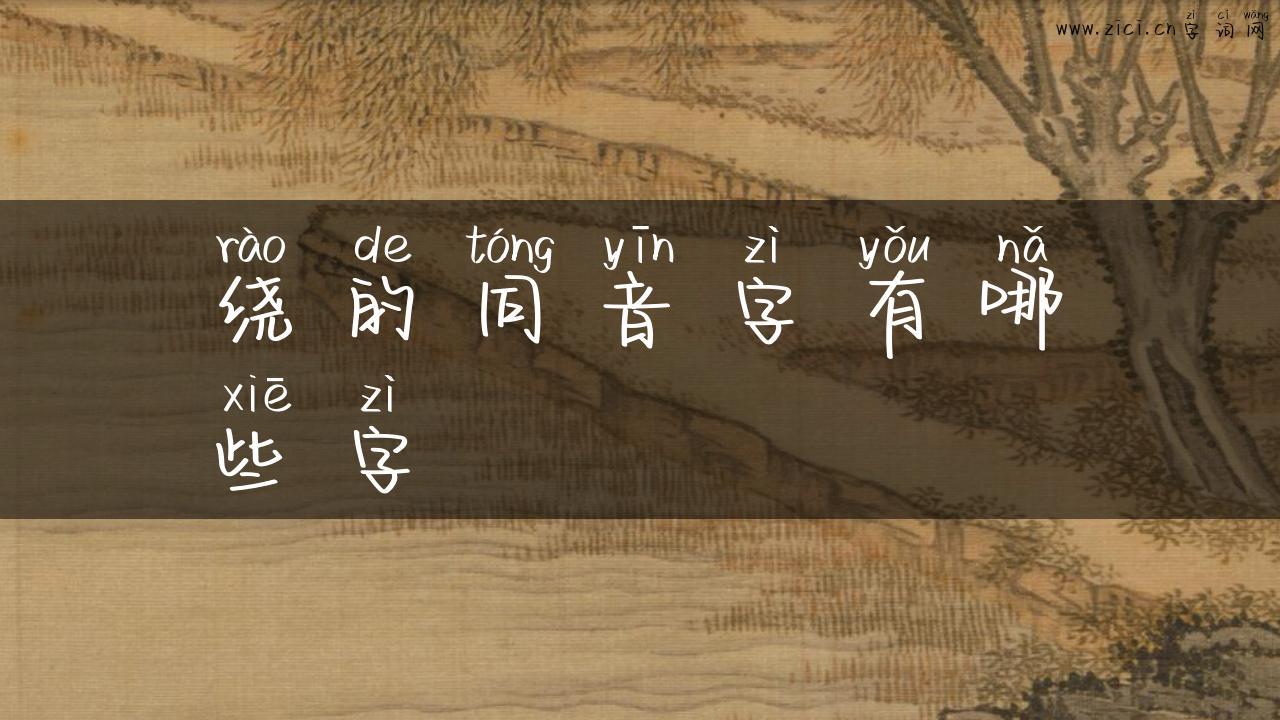 zì cí wǎng
www.zici.cn字词网
rào de tóng yīn zì yǒu nǎ
绕的同音字有哪
xiē zì
些字